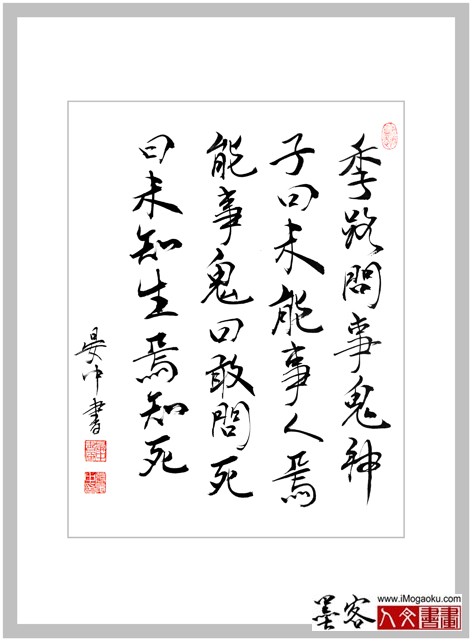 季路問事鬼神
子曰未能事人焉
能事鬼曰敢問死
曰未知生焉知死
晏中書
www.iMogaoku.com
墨客
人文書畫